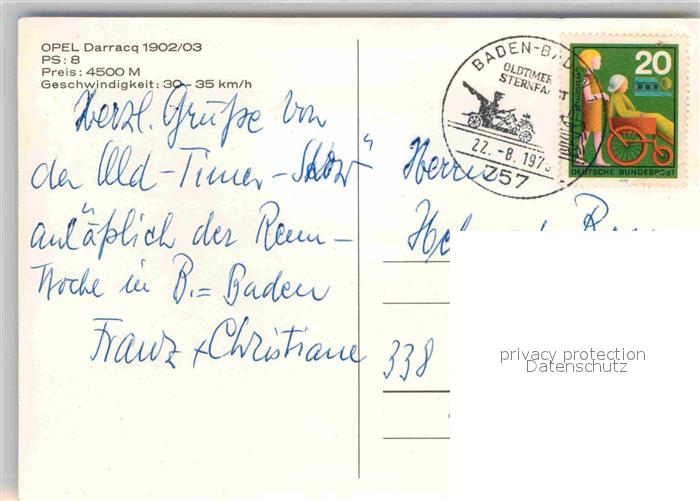 OPEL Darracq 1902/03
PS: 8
Preis: 4500 M
Geschwindigkeit: 30 - 35 km/h
Herzl. Grüße von
der Old-Timer-Show"
anläßlich der Renn-
Woche in B.=Baden
Franz + Christiane
BADEN-BAD
OLDTIMER
STERNFA
22.-8.197
757
20
DEUTSCHE BUNDESPOST
Herrn
338
privacy protection
Datenschutz